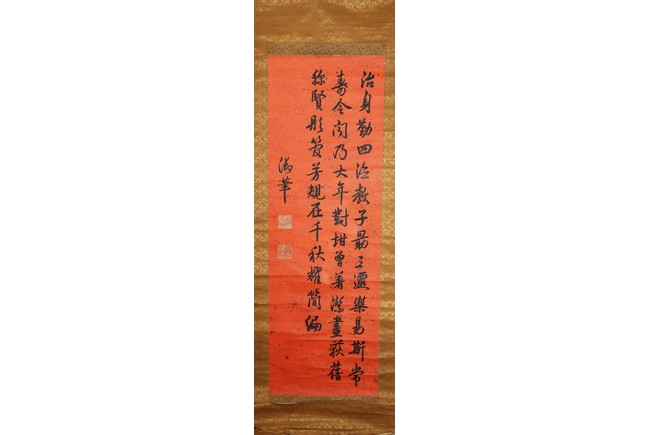 治身勤四教子最三遷樂易斯常
壽令聞乃大年對坩曾著潔畫荻舊
稱賢彤管芳規在千秋耀簡編
御筆